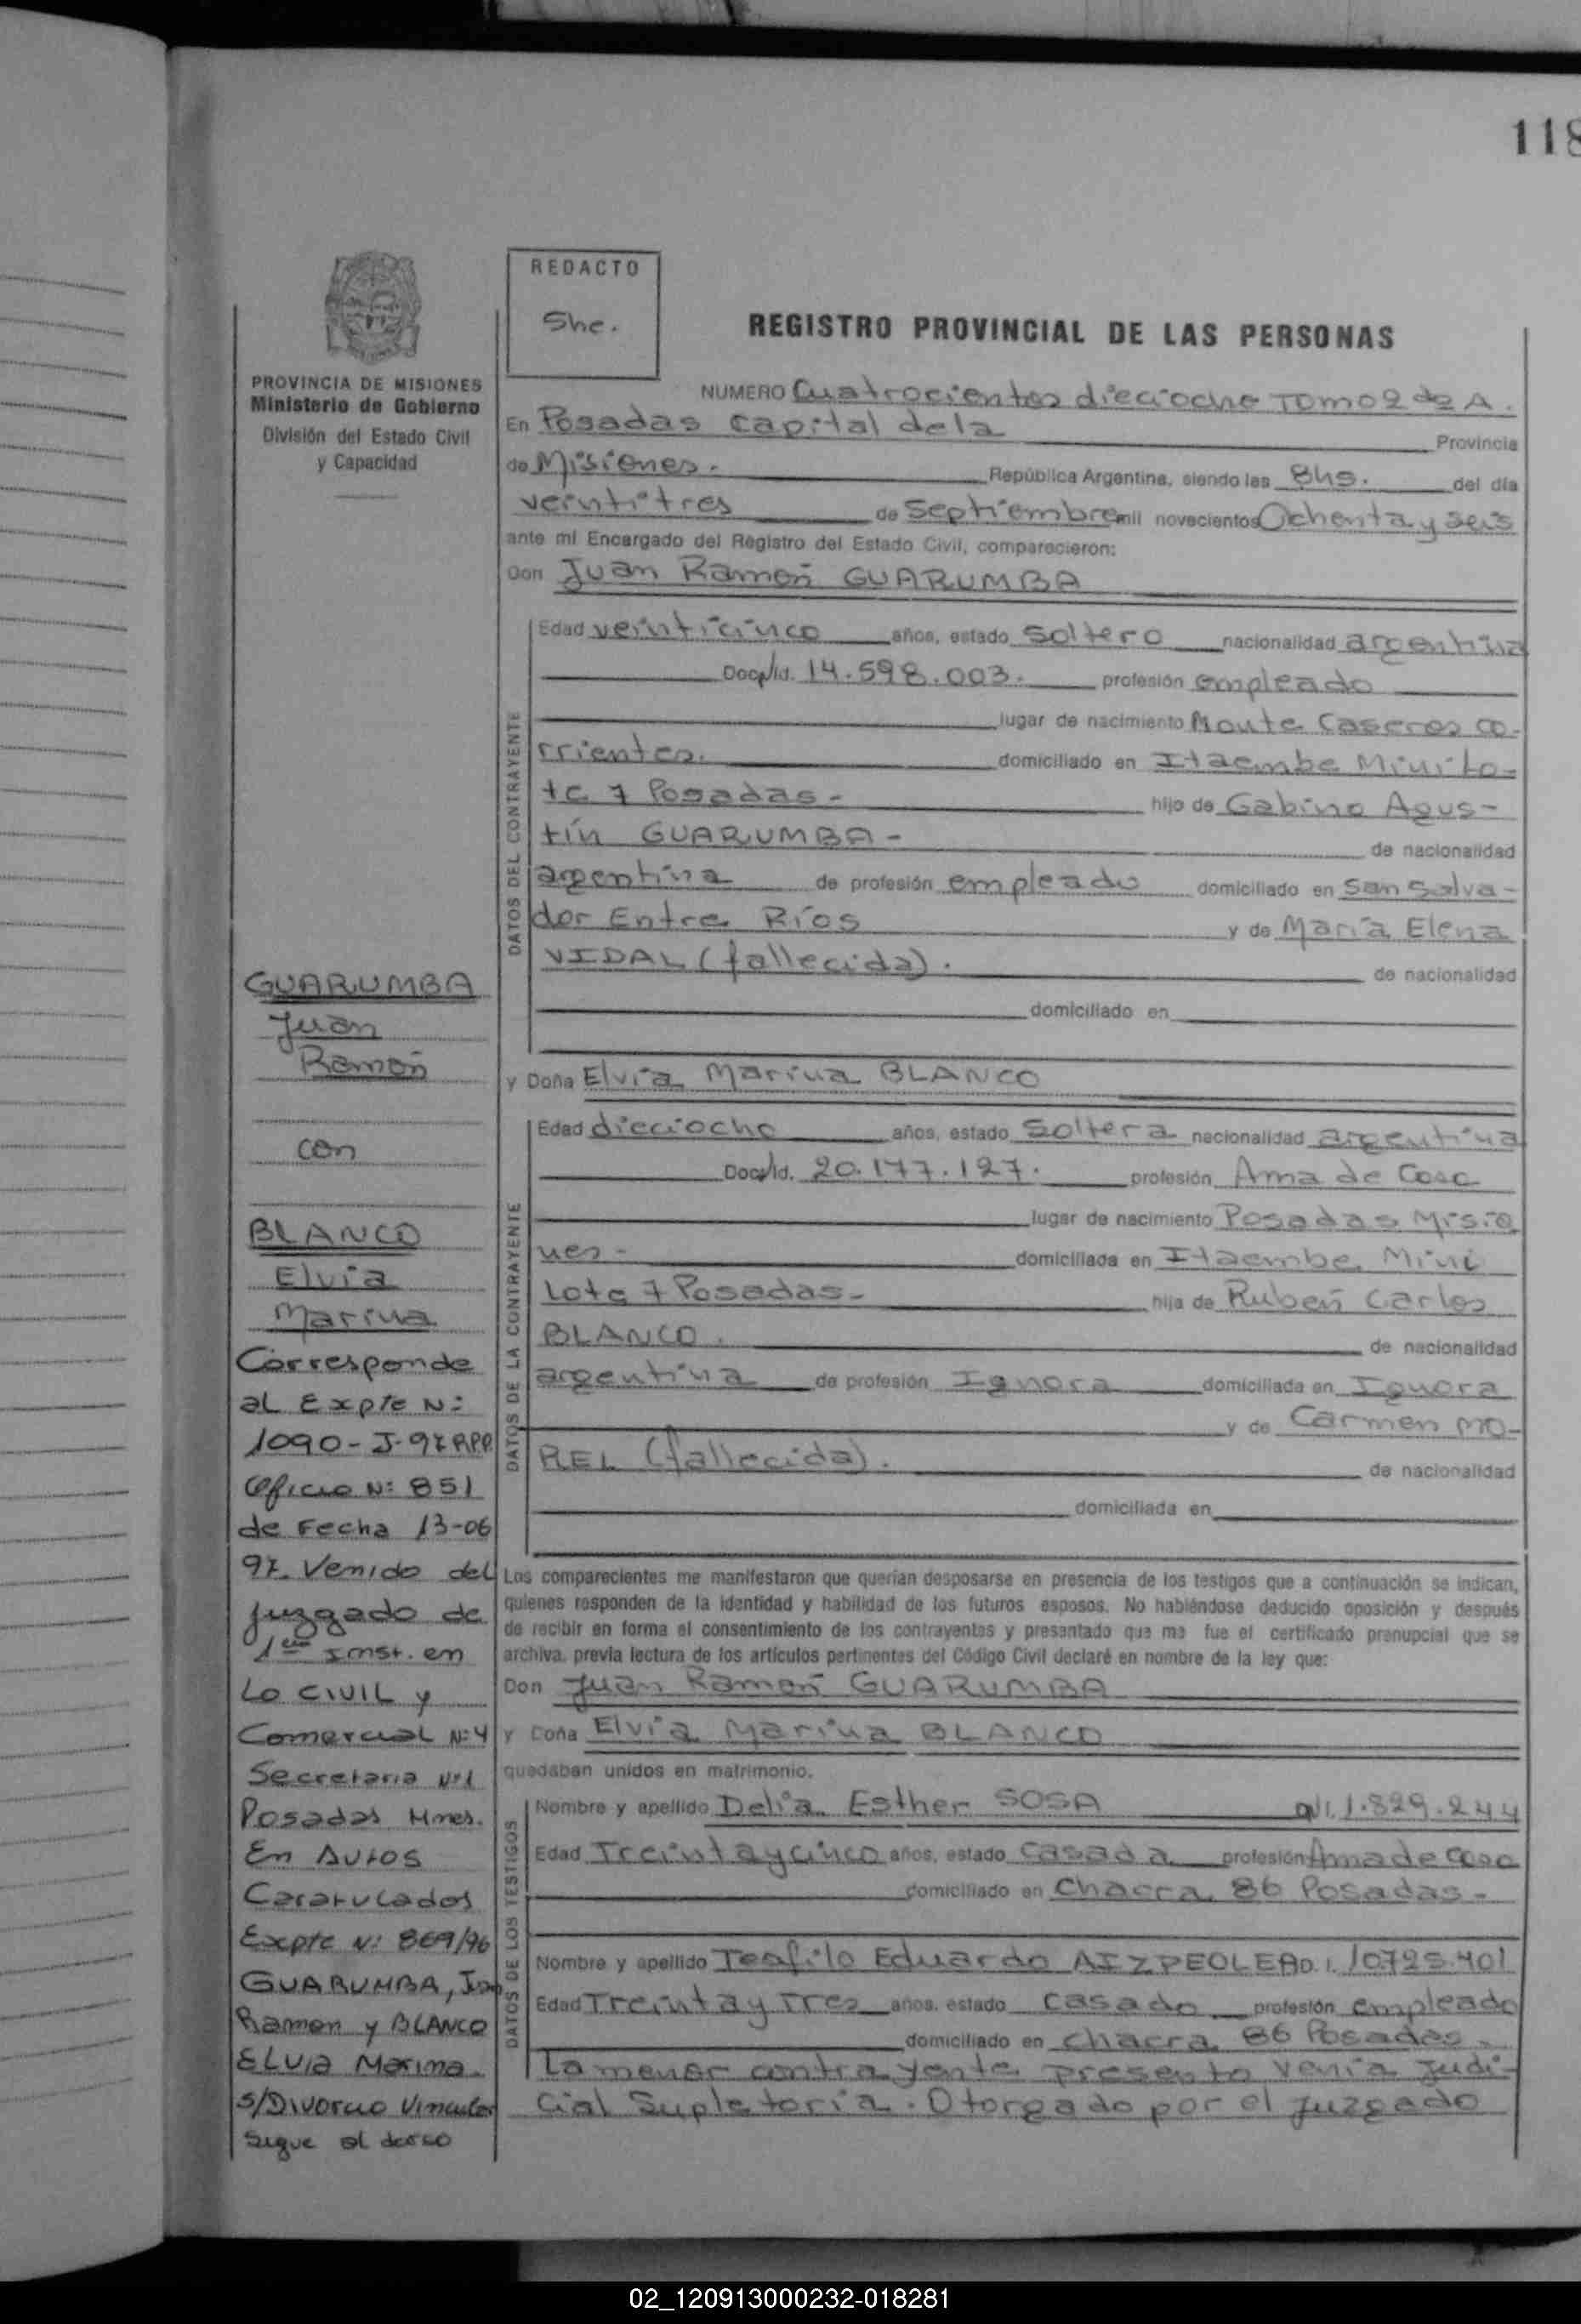 118
REDACTO
She.
REGISTRO PROVINCIAL DE LAS PERSONAS
PROVINCIA DE MISIONES
Ministerio de Gobierno
División del Estado Civil
y Capacidad
NUMERO Cuatrocientos dieciocho Tomo 2 de A.
En Posadas Capital de la Provincia
de Misiones. República Argentina, siendo las 8hs. del día
veintitres de Septiembre mil novecientos Ochenta y seis
ante mi Encargado del Registro del Estado Civil, comparecieron:
Don Juan Ramón GUARUMBA
DATOS DEL CONTRAYENTE
Edad veinticinco años, estado Soltero nacionalidad argentina
Doc. Id. 14.598.003. profesión empleado
lugar de nacimiento Monte Caseros Co-
rrientes. domiciliado en Itaembe Mini Lo-
te 7 Posadas- hijo de Gabino Agus-
tín GUARUMBA- de nacionalidad
argentina de profesión empleado domiciliado en San Salva-
dor Entre Ríos y de María Elena
VIDAL (fallecida). de nacionalidad
domiciliado en
y Doña Elvia Marina BLANCO
DATOS DE LA CONTRAYENTE
Edad dieciocho años, estado Soltera nacionalidad argentina
Doc. Id. 20.177.127. profesión Ama de Casa
lugar de nacimiento Posadas Misio
nes- domiciliada en Itaembe Mini
Lote 7 Posadas- hija de Rubén Carlos
BLANCO. de nacionalidad
argentina de profesión Ignora domiciliada en Ignora
y de Carmen MO-
REL (fallecida). de nacionalidad
domiciliada en
Los comparecientes me manifestaron que querían desposarse en presencia de los testigos que a continuación se indican,
quienes responden de la identidad y habilidad de los futuros esposos. No habiéndose deducido oposición y después
de recibir en forma el consentimiento de los contrayentes y presentado que me fue el certificado prenupcial que se
archiva, previa lectura de los artículos pertinentes del Código Civil declaré en nombre de la ley que:
Don Juan Ramón GUARUMBA
y Doña Elvia Marina BLANCO
quedaban unidos en matrimonio.
DATOS DE LOS TESTIGOS
Nombre y apellido Delia Esther SOSA 1.829.244
Edad Treinta y cinco años, estado casada profesión Ama de casa
domiciliado en Chacra 86 Posadas-
Nombre y apellido Teofilo Eduardo AIZPEOLEA D.I. 10.725.401
Edad Treinta y Tres años, estado casado profesión empleado
domiciliado en chacra 86 Posadas-
La menor contrayente presento venia Judi-
cial Supletoria. Otorgado por el Juzgado
GUARUMBA
Juan
Ramón
con
BLANCO
Elvia
Marina
Corresponde
al Expte N:
1090-J-97 RPP
Oficio N: 851
de Fecha 13-06
97. Venido del
Juzgado de
1era Inst. en
Lo CIVIL y
Comercial N:4
Secretaria Nº1
Posadas Mnes.
En Autos
Caratulados
Expte N: 869/96
GUARUMBA, Juan
Ramon y BLANCO
ELVIA Marina
S/Divorcio Vincular
Sigue al dorso
02_120913000232-018281